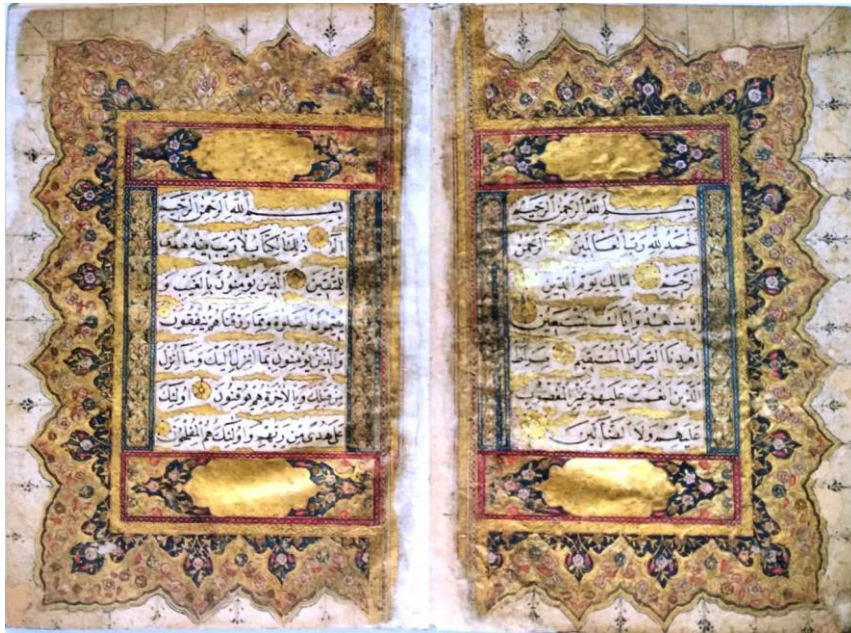 بسم الله الرحمن الرحيم
الحمد لله رب العالمين الرحمن
الرحيم مالك يوم الدين
اياك نعبد واياك نستعين
اهدنا الصراط المستقيم صراط
الذين انعمت عليهم غير المغضوب
عليهم ولا الضالين
بسم الله الرحمن الرحيم
الم ذلك الكتاب لا ريب فيه هدى
للمتقين الذين يؤمنون بالغيب و
يقيمون الصلوة ومما رزقناهم ينفقون
والذين يؤمنون بما انزل اليك وما انزل
من قبلك وبالاخرة هم يوقنون اولئك
على هدى من ربهم واولئك هم المفلحون